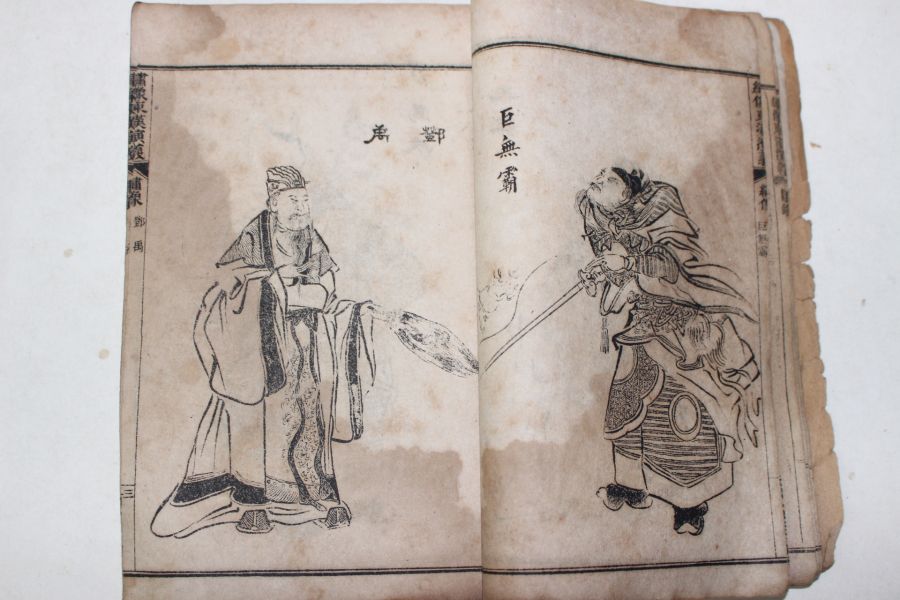 巨無霸
鄧禹
繡像東漢演義
繡像
鄧禹
三
巨無霸